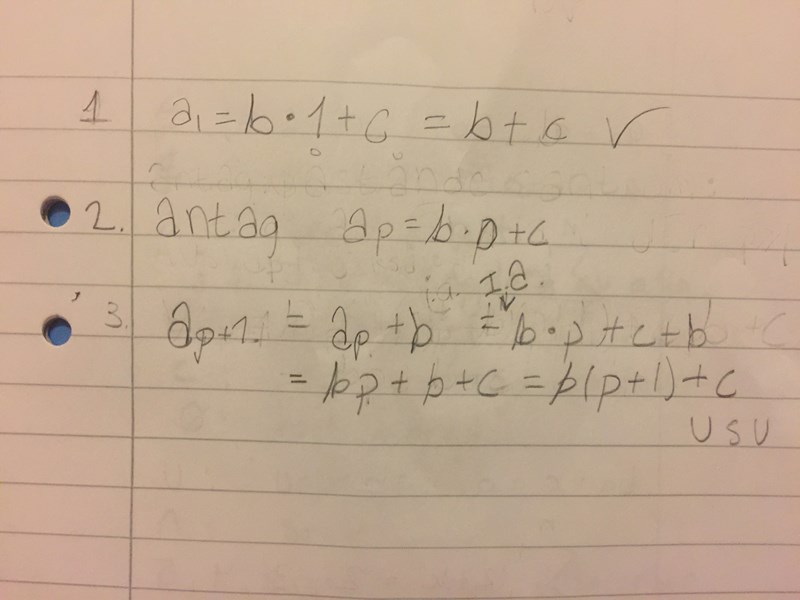 1 a₁ = b · 1 + c = b + c ✓
2. antag a_p = b · p + c
I.a.
3. a_{p+1} = a_p + b = b · p + c + b
= bp + b + c = b(p+1) + c
USU